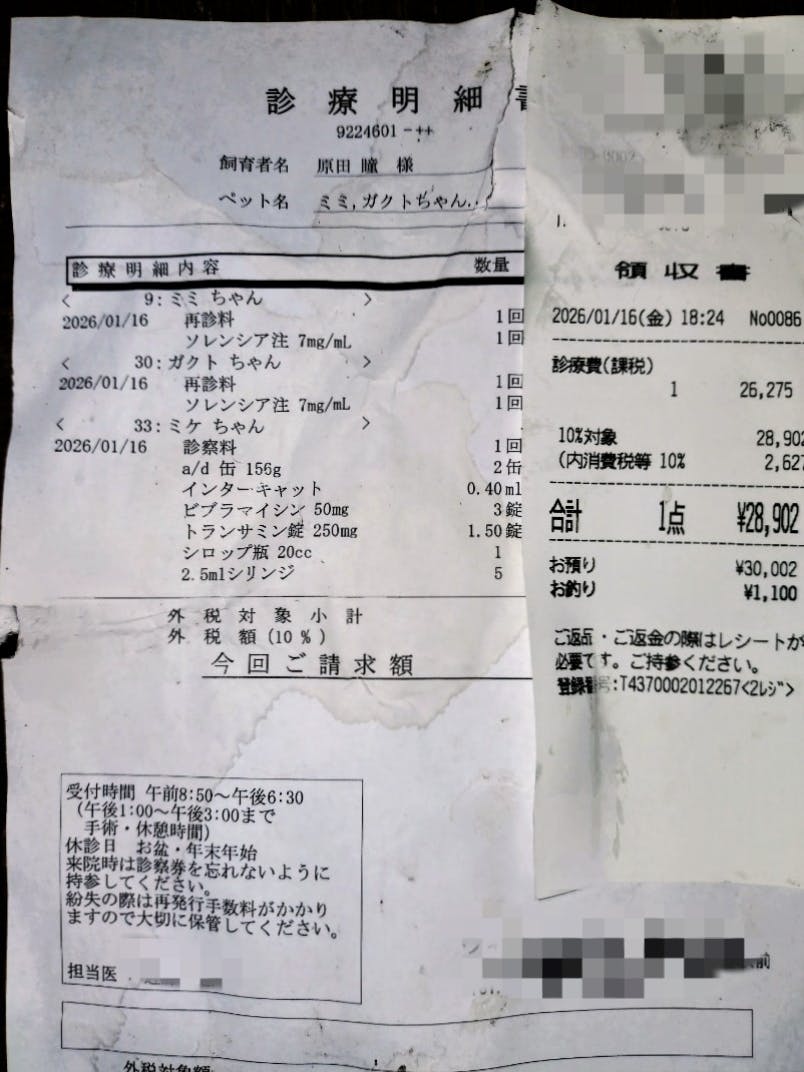 診療明細
9224601-++
飼育者名 原田 瞳 様
ペット名 ミミ,ガクトちゃん..
診療明細内容 数量
< 9:ミミ ちゃん >
2026/01/16 再診料 1回
ソレンシア注 7mg/mL 1回
< 30:ガクト ちゃん >
2026/01/16 再診料 1回
ソレンシア注 7mg/mL 1回
< 33:ミケ ちゃん >
2026/01/16 診察料 1回
a/d 缶 156g 2缶
インターキャット 0.40ml
ビブラマイシン 50mg 3錠
トランサミン錠 250mg 1.50錠
シロップ瓶 20cc 1
2.5mlシリンジ 5
外税対象小計
外税額(10%)
今回ご請求額
受付時間 午前8:50～午後6:30
(午後1:00～午後3:00まで
手術・休憩時間)
休診日 お盆・年末年始
来院時は診察券を忘れないように
持参してください。
紛失の際は再発行手数料がかかり
ますので大切に保管してください。
担当医
前
外税対象額
領収書
2026/01/16(金) 18:24 No0086
診療費(課税)
1 26,275
10%対象 28,902
(内消費税等 10% 2,627
合計 1点 ¥28,902
お預り ¥30,002
お釣り ¥1,100
ご返品・ご返金の際はレシートが
必要です。ご持参ください。
登録番号:T4370002012267<2レジ>